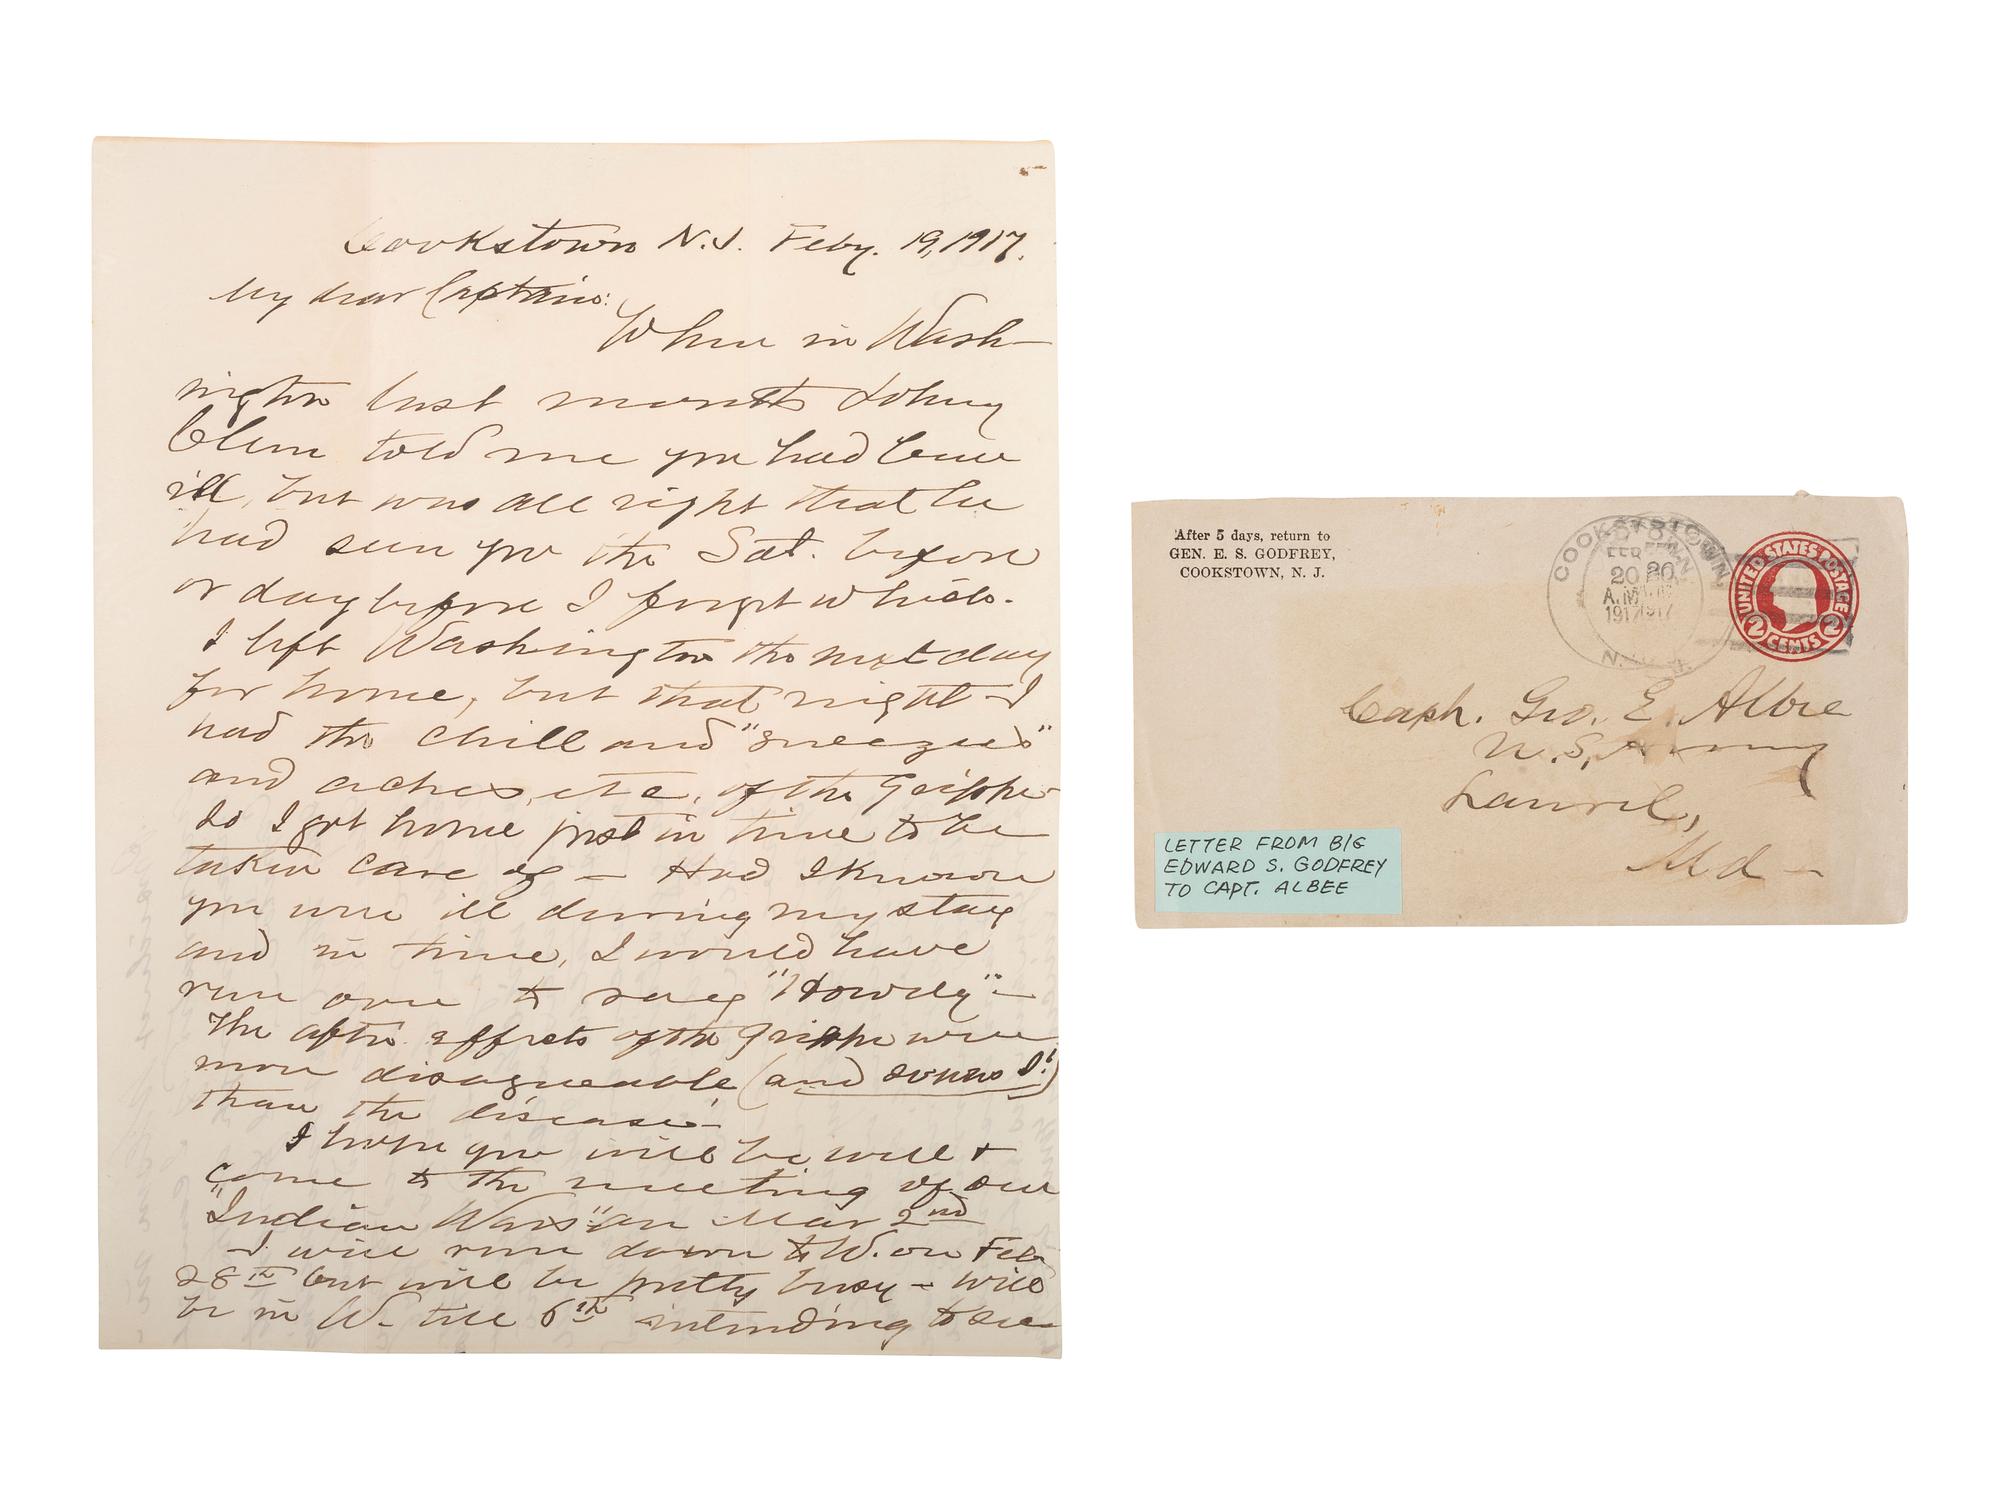 Cookstown N.J. Feby. 19, 1917.
My dear Captain:
When in Wash-
ington last month Johnny
Clem told me you had been
ill, but was all right that he
had seen you the Sat. before
or day before I forget which.
I left Washington the next day
for home, but that night I
had the chill and "sneezes"
and aches, etc, of the Grippe
So I got home just in time to be
taken care of — Had I known
you were ill during my stay
and in time, I would have
run over to say "Howdy" —
The after effects of the Grippe were
more disagreeable (and I!)
than the disease.
I hope you will be well +
come to the meeting of our
"Indian Wars" on Mar 2nd
I will run down to W. on Feb
28th but will be pretty busy — will
be in W. till 6th intending to see
After 5 days, return to
GEN. E. S. GODFREY,
COOKSTOWN, N. J.
COOKSTOWN
FEB
20
A.M.
1917
N.J.
UNITED STATES POSTAGE
2 CENTS 2
Capt. Geo. E. Albee
U.S. Army
Laurel,
Md —
LETTER FROM B/G
EDWARD S. GODFREY
TO CAPT. ALBEE